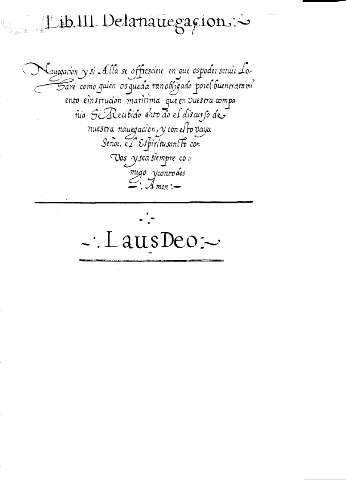 Lib.III. Delanauegaçion.
Nauegaçion y si Alla se offresciere en que os poder seruir Lo
hare como quien os queda tan obligado por el buen tratami
ento e instruçion maritima que en vuestra compa
ñia E Reçibido dito do el discurso de
nuestra nauegaçion, y con esto vaya
Señor, el Espiritu sancto con
Vos y sea siempre co
migo y con todos
Amen
Laus Deo